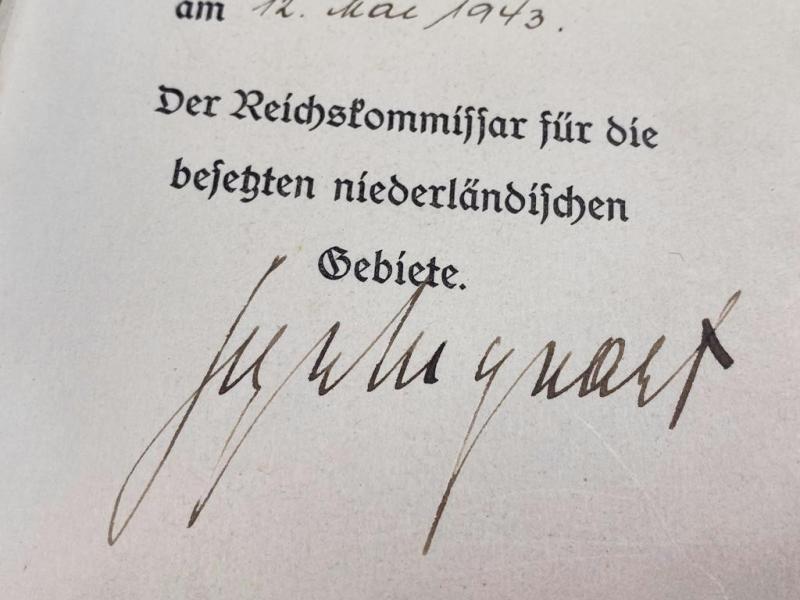 am 12. Mai 1943.
Der Reichskommissar für die
besetzten niederländischen
Gebiete.
Seyss-Inquart